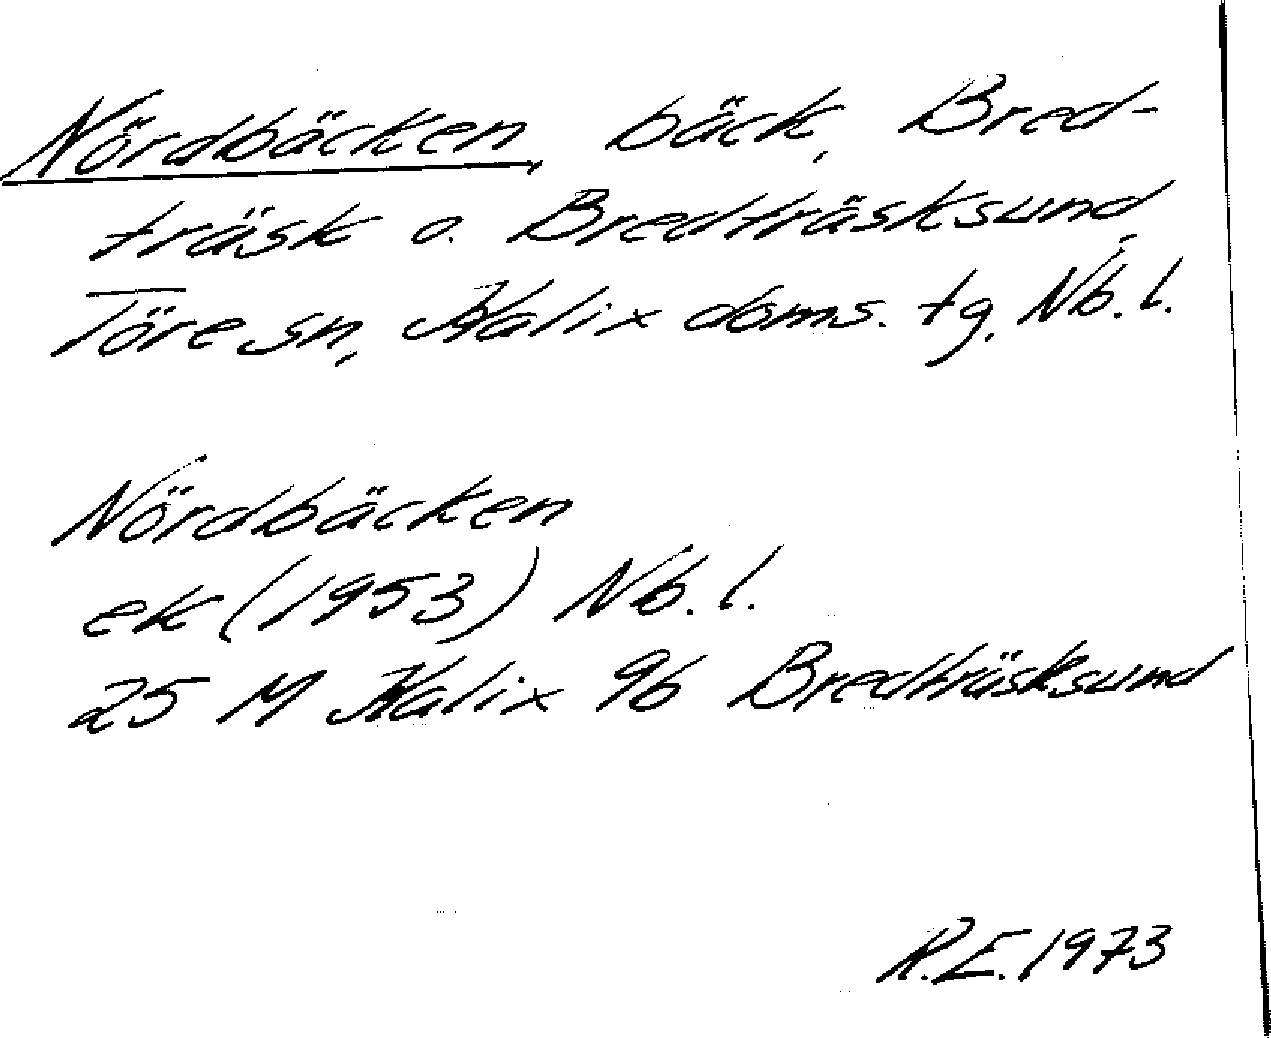 Nördbäcken, bäck, Bred-
träsk o. Bredträsksund,
Töre sn, Kalix doms. tg, Nb. l.
Nördbäcken
ek (1953) Nb. l.
25 M Kalix 9b Bredträsksund
R.E. 1973